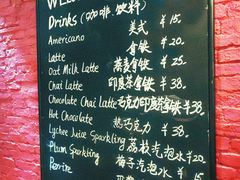 Drinks (咖啡 饮料)
Americano 美式 ¥15.
Latte 拿铁 ¥20.
Oat Milk Latte 燕麦拿铁 ¥25.
Chai Latte 印度茶拿铁 ¥38.
Chocolate Chai Latte 巧克力印度茶拿铁 ¥38.
Hot Chocolate 热巧克力 ¥38.
Lychee Juice Sparkling 荔枝汽泡水 ¥20
Plum Sparkling 梅子汽泡水 ¥15.